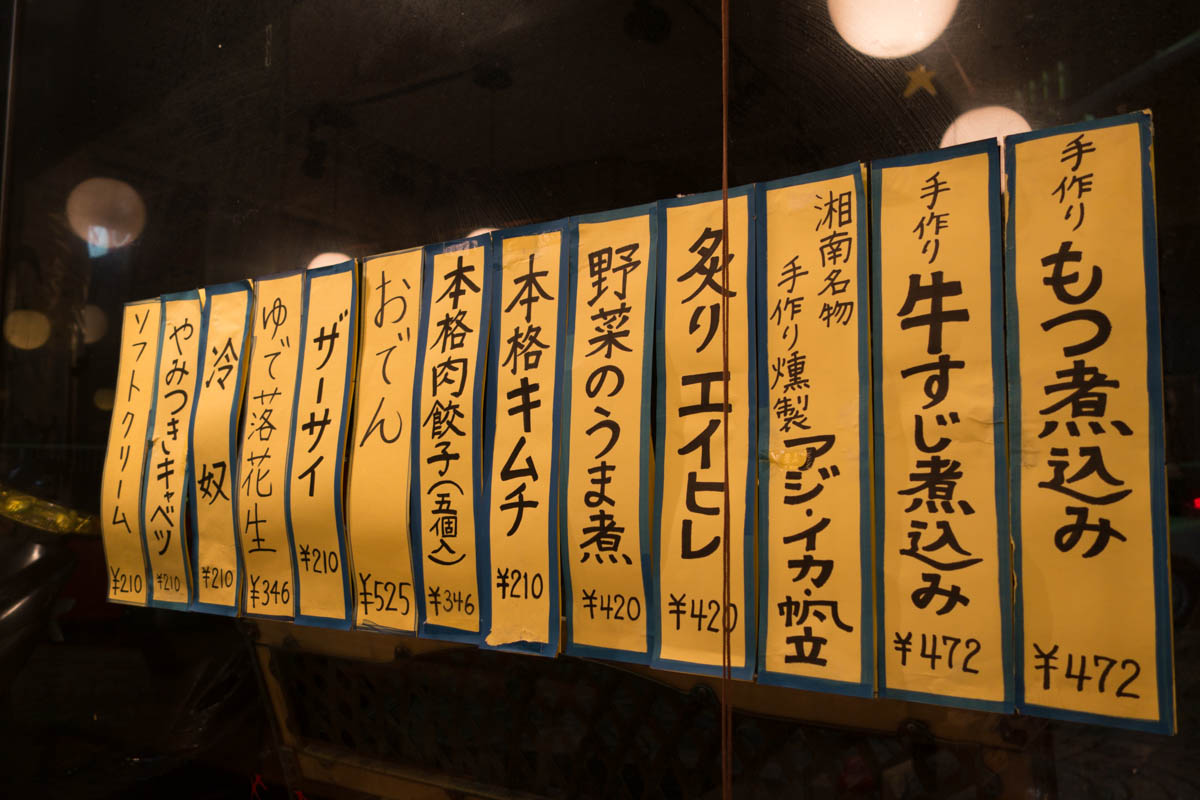 手作り
もつ煮込み
¥472
手作り
牛すじ煮込み
¥472
湘南名物
手作り燻製
アジ・イカ・帆立
炙りエイヒレ
¥420
野菜のうま煮
¥420
本格キムチ
¥210
本格肉餃子(五個入)
¥346
おでん
¥525
ザーサイ
¥210
ゆで落花生
¥346
冷奴
¥210
やみつきキャベツ
¥210
ソフトクリーム
¥210